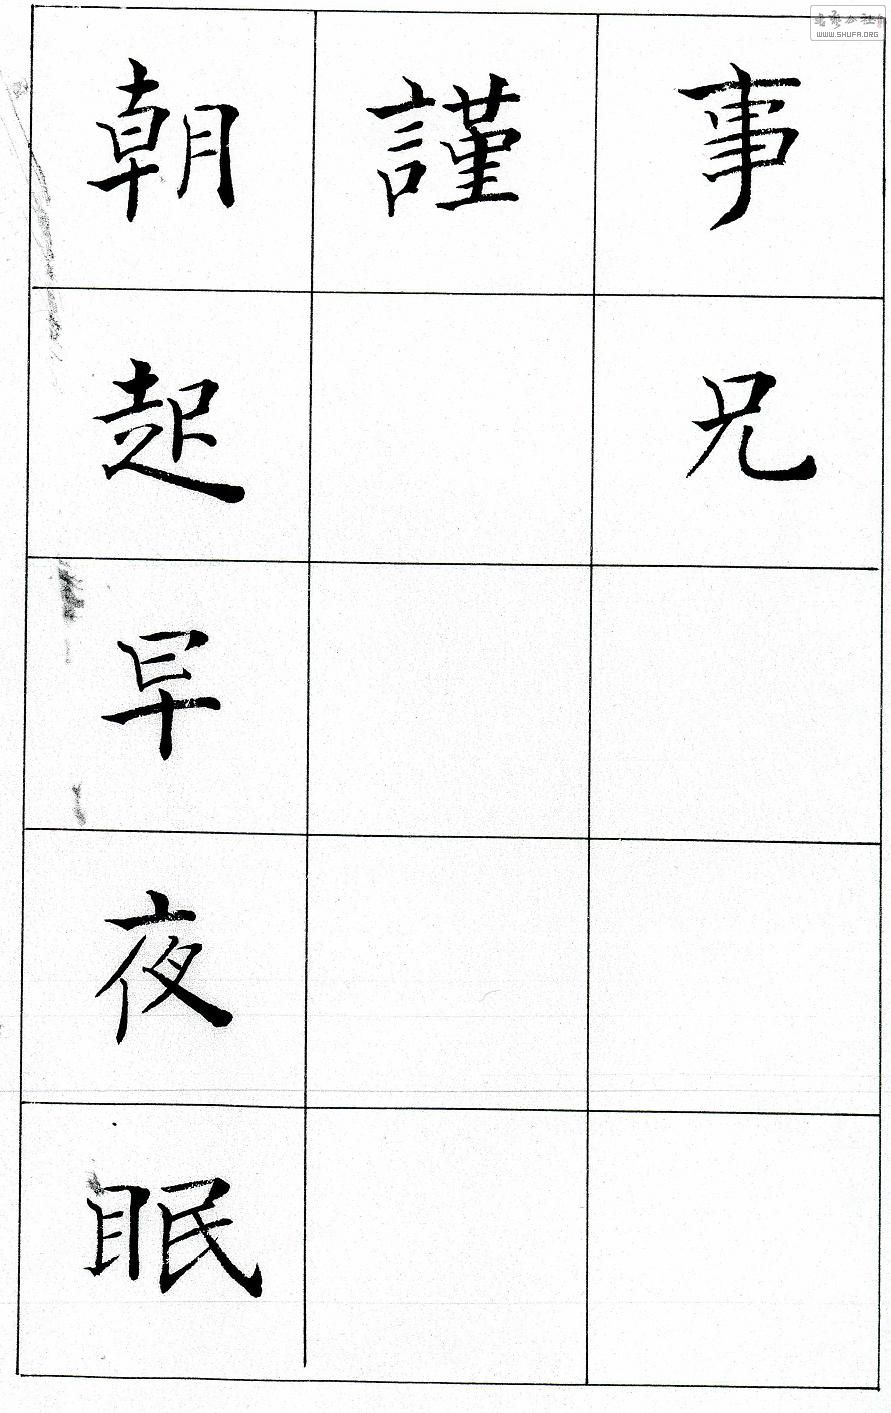 事兄
謹
朝起早夜眠
书法公社
WWW.SHUFA.ORG